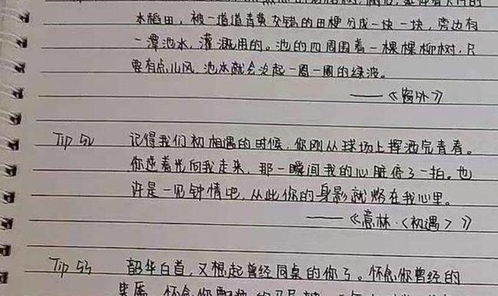 水稻田,被一道道青黄交错的田埂分成一块一块,旁边有
一潭池水,灌溉用的。池的四周围着一棵棵柳树,只
要有点儿风,池水就会泛起一圈一圈的绿波。
——《窗外》
Tip 52 记得我们初相遇的时候,你刚从球场上挥洒完青春。
你逆着光向我走来,那一瞬间我的心脏停了一拍。也
许是一见钟情吧,从此你的身影就烙在我心里。
——《意林·<初遇>》
Tip 53 韶华白首,又想起曾经同桌的你了。怀念你曾经的
怀念你